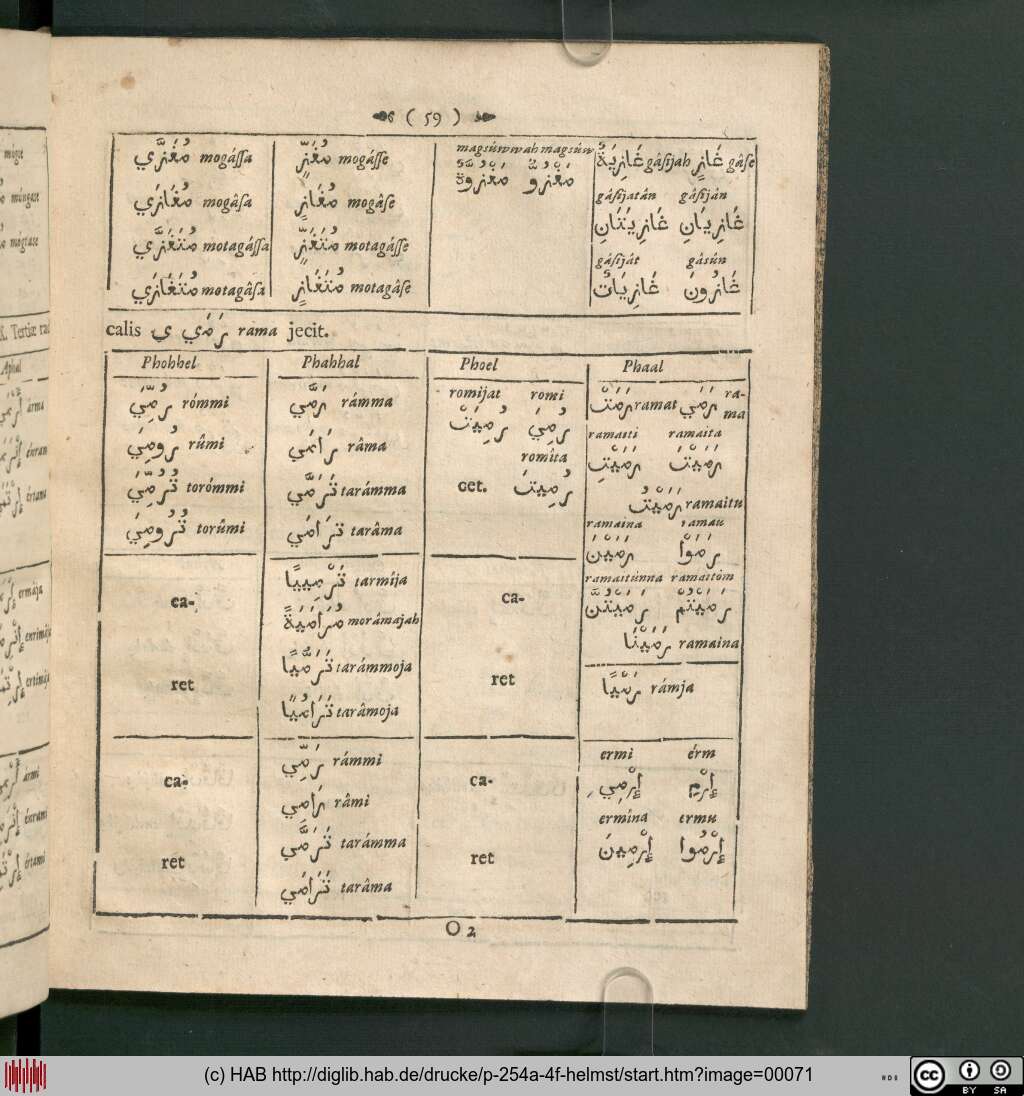 ( 59 )
مُغَزَّي mogássa مُغَزِّ mogásse magsúwwah magsúw غَازِيَةٌ gâsijah غَازٍ gâse
مَغْزُوَّةٌ مَغْزُوٌّ
مُغَازَي mogâsa مُغَازِ mogâse gâsijatân gâsijân
غَازِيَتَانِ غَازِيَانِ
مُتَغَزَّي motagássa مُتَغَزِّ motagásse gâsijât gâsûn
مُتَغَازَي motagâsa مُتَغَازِ motagâse غَازِيَاتٌ غَازُونَ
calis ي رَمَي rama jecit.
Phohhel Phahhal Phoel Phaal
رُمِّيَ rómmi رَمَّي rámma romijat romi رَمَتْ ramat رَمَي ra-
ma
رُمِيَتْ رُمِيَ
رُومِيَ rûmi رَامَي râma romîta ramaiti ramaita
رَمَيْتِ رَمَيْتَ
تُرُمِّيَ torómmi تَرَمَّي tarámma cet. رُمِيتَ
رَمَيْتُ ramaitu
تُرُومِيَ torûmi تَرَامَي tarâma ramaina ramau
رَمَيْنَ رَمَوْا
ca- تَرْمِييًا tarmîja ca- ramaitúnna ramaitom
رَمَيْتُنَّ رَمَيْتُمْ
مُرَامَيَةً morâmajah
رَمَيْنَا ramaina
ret تَرَمُّيًا tarámmoja ret
رَمْيًا rámja
تَرَامُيًا tarâmoja
ca- رَمِّي rámmi ca- ermi érm
إِرْمِي إِرْمِ
رَامِي râmi
ermína ermu
ret تَرَمَّي tarámma ret إِرْمِينَ إِرْمُوا
تَرَامَي tarâma
O 2
K. Tertiæ rad
(c) HAB http://diglib.hab.de/drucke/p-254a-4f-helmst/start.htm?image=00071
cc BY SA